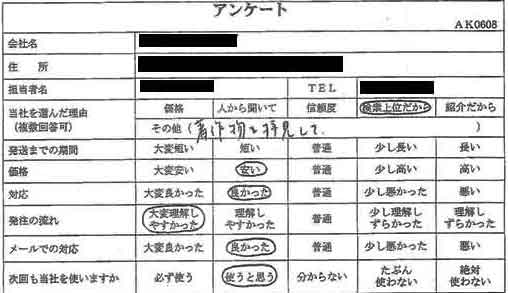 アンケート
AK0608
会社名
住 所
担当者名 TEL
当社を選んだ理由 (複数回答可) 価格 人から聞いて 信頼度 検索上位だから 紹介だから
その他 (著作物を拝見して. )
発送までの期間 大変短い 短い 普通 少し長い 長い
価格 大変安い 安い 普通 少し高い 高い
対応 大変良かった 良かった 普通 少し悪かった 悪い
発注の流れ 大変理解しやすかった 理解しやすかった 普通 少し理解しずらかった 理解しずらかった
メールでの対応 大変良かった 良かった 普通 少し悪かった 悪い
次回も当社を使いますか 必ず使う 使うと思う 分からない たぶん使わない 絶対使わない